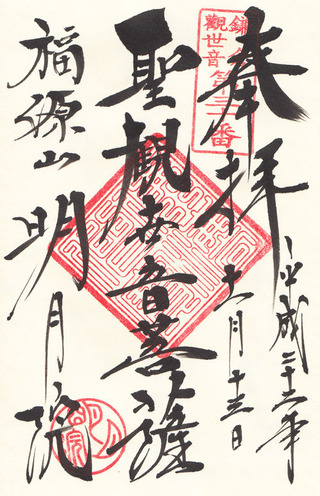 奉拝
平成二十二年
十一月十三日
聖観世音菩薩
福源山
明月院
鎌倉
観世音第三十番